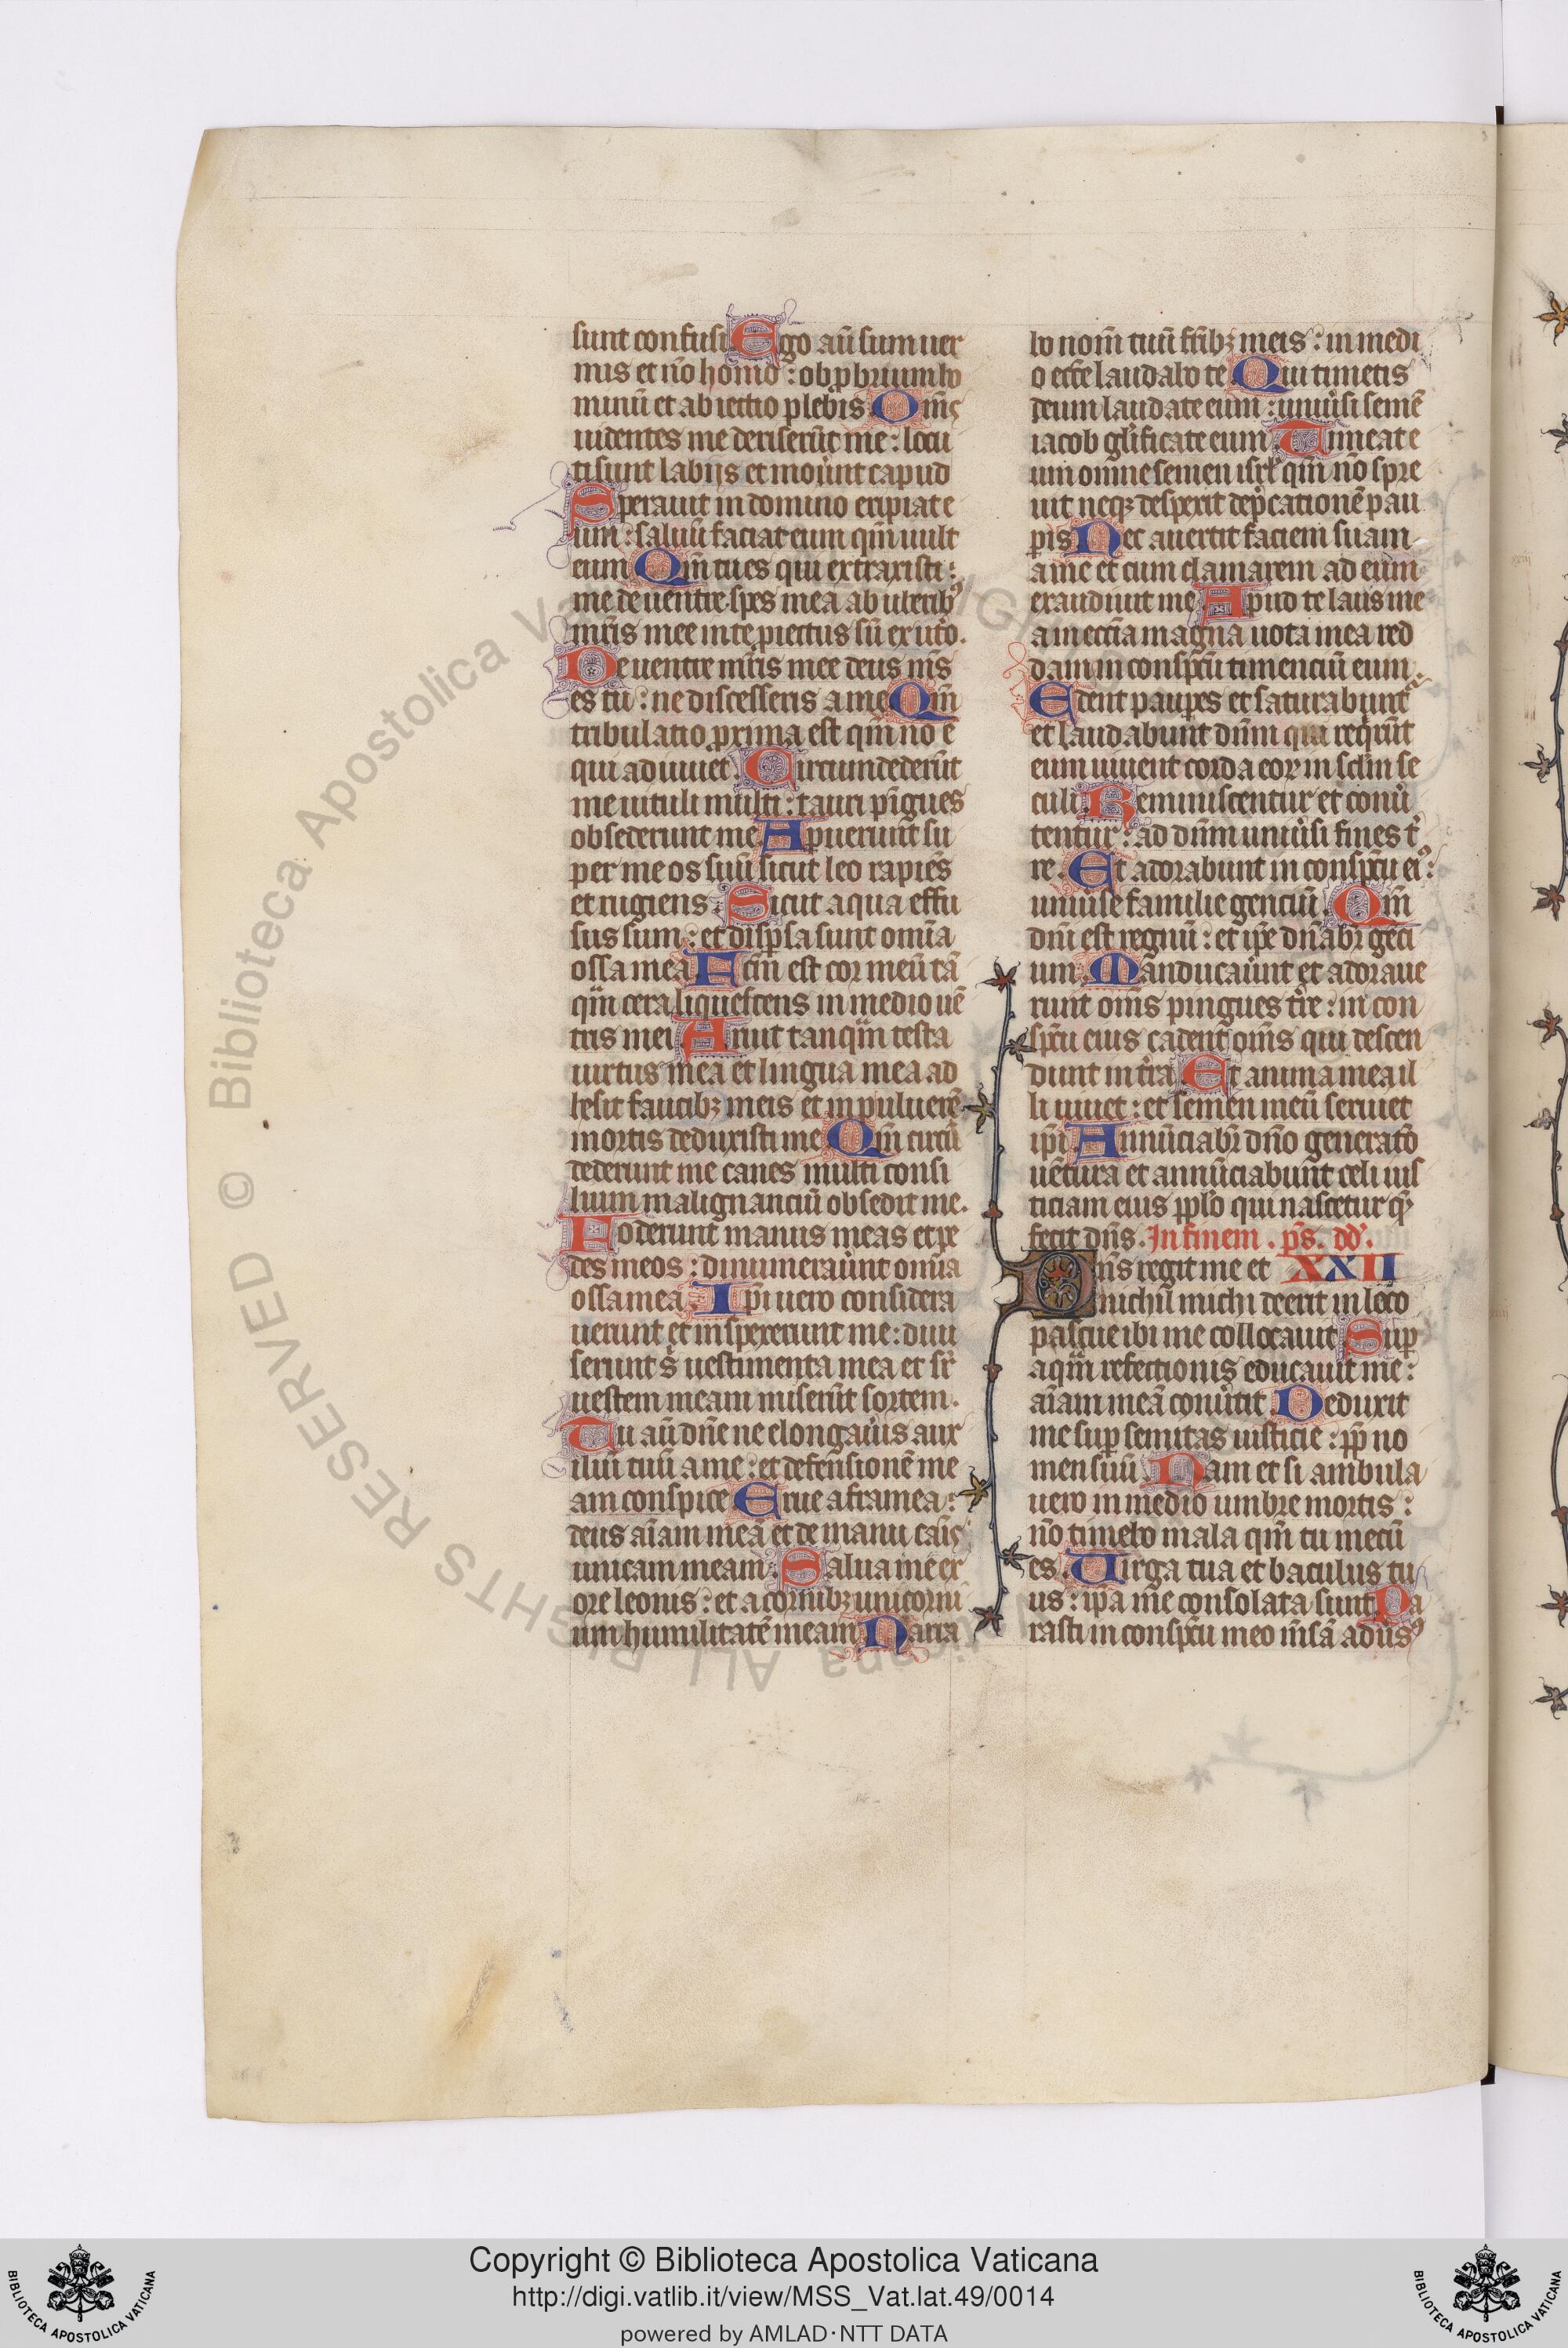 sunt confusi Ego aū sum uer
mis et nō homo : obpbrium ho
minū et abiectio plebis Om̄s
uidentes me deriserūt me : locu
ti sunt labijs et mou̇unt capud
Sperauit in domino eripiat e
um : saluū faciat eum qm̄ uult
eum Qm̄ tu es qui extraxisti :
me de uentre . spes mea ab uberibꝰ
mr̄is mee in te piectus sū ex uto .
De uentre mr̄is mee deus m̄s
es tu : ne discesseris a me Qm̄
tribulatio proxima est qm̄ nō ē
qui adiuuet . Circumdederūt
me uituli multi : tauri pīgues
obsederunt me Apuerunt su
per me os suū sicut leo rapiēs
et rugiens . Sicut aqua effu
sus sum : et dispsa sunt om̄ia
ossa mea Fcm̄ est cor meū tā
qm̄ cera liquescens in medio uē
tris mei Aruit tanqm̄ testa
uirtus mea et lingua mea ad
hesit faucibꝫ meis et in puluerē
mortis deduxisti me Qm̄ circū
dederunt me canes multi consi
lium malignanciū obsedit me .
Foderunt manus meas et pe
des meos : dinumerau̇unt om̄ia
ossa mea . Ipi uero considera
uerunt et inspexerunt me : diui
serunt s̄ uestimenta mea et sr̄
uestem meam miserūt sortem .
Tu aū dn̄e ne elongau̇is aux
iliū tuū a me : et defensionē me
am conspice Erue a framea :
deus aīam meā et de manu canis
unicam meam . Salua me ex
ore leonis : et a cornibꝫ unicorni
um humilitatē meam Narra
bo nom̄ tuū fr̄ibꝫ meis : in medi
o eccē laudabo te Qui timetis
deum laudate eum : uniu̇si semē
iacob gl̄ificate eum Timeat e
um omne semen isrl̄ qm̄ nō spre
uit neqꝫ despexit dep̄cationē pau
pis Nec auertit faciem suam
a me et cum clamarem ad eum
exaudiuit me Apud te laus me
a in ecc̄ia magna uota mea red
dam in conspcū timenciū eum .
Edent paupes et saturabunt᷑
et laudabunt dn̄m qui reqr̄unt
eum uiuent corda eoꝝ in sclm̄ se
culi Reminiscentur et conu̇
tentur : ad dn̄m uniu̇si fines t̄
re . Et adorabunt in conspcū eiꝰ :
uniu̇se familie genciū . Qm̄
dn̄i est regnū : et ipe dn̄abr̄ geci
um . Manducau̇unt et adoraue
runt om̄s pingues tr̄e : in con
spcū eius cadent om̄s qui descen
dunt in tr̄a Et anima mea il
li uiuet : et semen meū seruiet
ipi Annūciabr̄ dn̄o generatō
uētura et annūciabunt celi ius
ticiam eius pplo qui nascetur q̄
fecit dn̄s . In finem . ps̄ . dd̄ .
Dn̄s regit me et XXII
nichil michi deerit in loco
pascue ibi me collocauit Sup
aqm̄ refectionis educauit me :
aīam meā conu̇tit Deduxit
me sup semitas iusticie : pp no
men suū . Nam et si ambula
uero in medio umbre mortis :
nō timebo mala qm̄ tu mecū
es . Uirga tua et baculus tu
us : ipa me consolata sunt Pa
rasti in conspcū meo m̄sā adu̇sꝰ
© Biblioteca Apostolica Vaticana ALL RIGHTS RESERVED
Copyright © Biblioteca Apostolica Vaticana
http://digi.vatlib.it/view/MSS_Vat.lat.49/0014
powered by AMLAD·NTT DATA
BIBLIOTECA APOSTOLICA VATICANA
BIBLIOTECA APOSTOLICA VATICANA